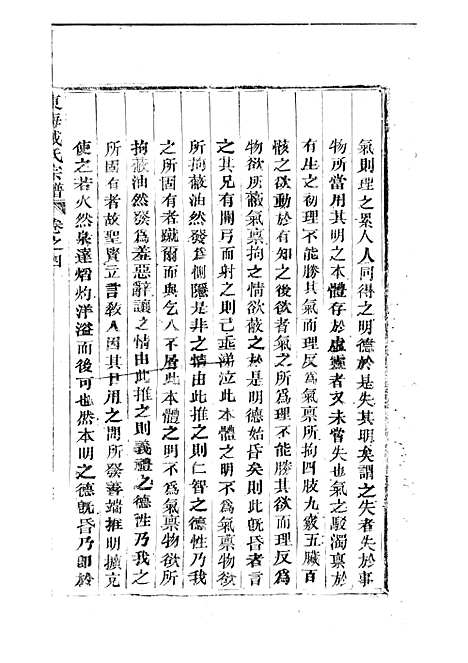 氣則理之累人人同得之明德於是失其明矣謂之失者失於事
物所當用其明之本體存於虛靈者又未嘗失也氣之駁濁稟於
有生之初理不能勝其氣而理反爲氣稟所拘四肢九竅五臟百
骸之欲動於有知之後欲者氣之所爲理不能勝其欲而理反爲
物欲所蔽氣稟拘之情欲蔽之於是明德始昏矣則此既昏者言
之其兄有關弓而射之則己垂涕泣此本體之明不爲氣稟物欲
所拘蔽油然發爲惻隱是非之情由此推之則仁智之德性乃我
之所固有者蹴爾而與乞人不屑此本體之明不爲氣稟物欲所
拘蔽油然發爲羞惡辭讓之情由此推之則義禮之德性乃我之
所固有者故聖賢立言敎人因其日用之間所發善端推明擴充
使之若火然泉達熖灼洋溢而後可也然本明之德既昏乃卽於
東海戚氏宗譜 卷之四